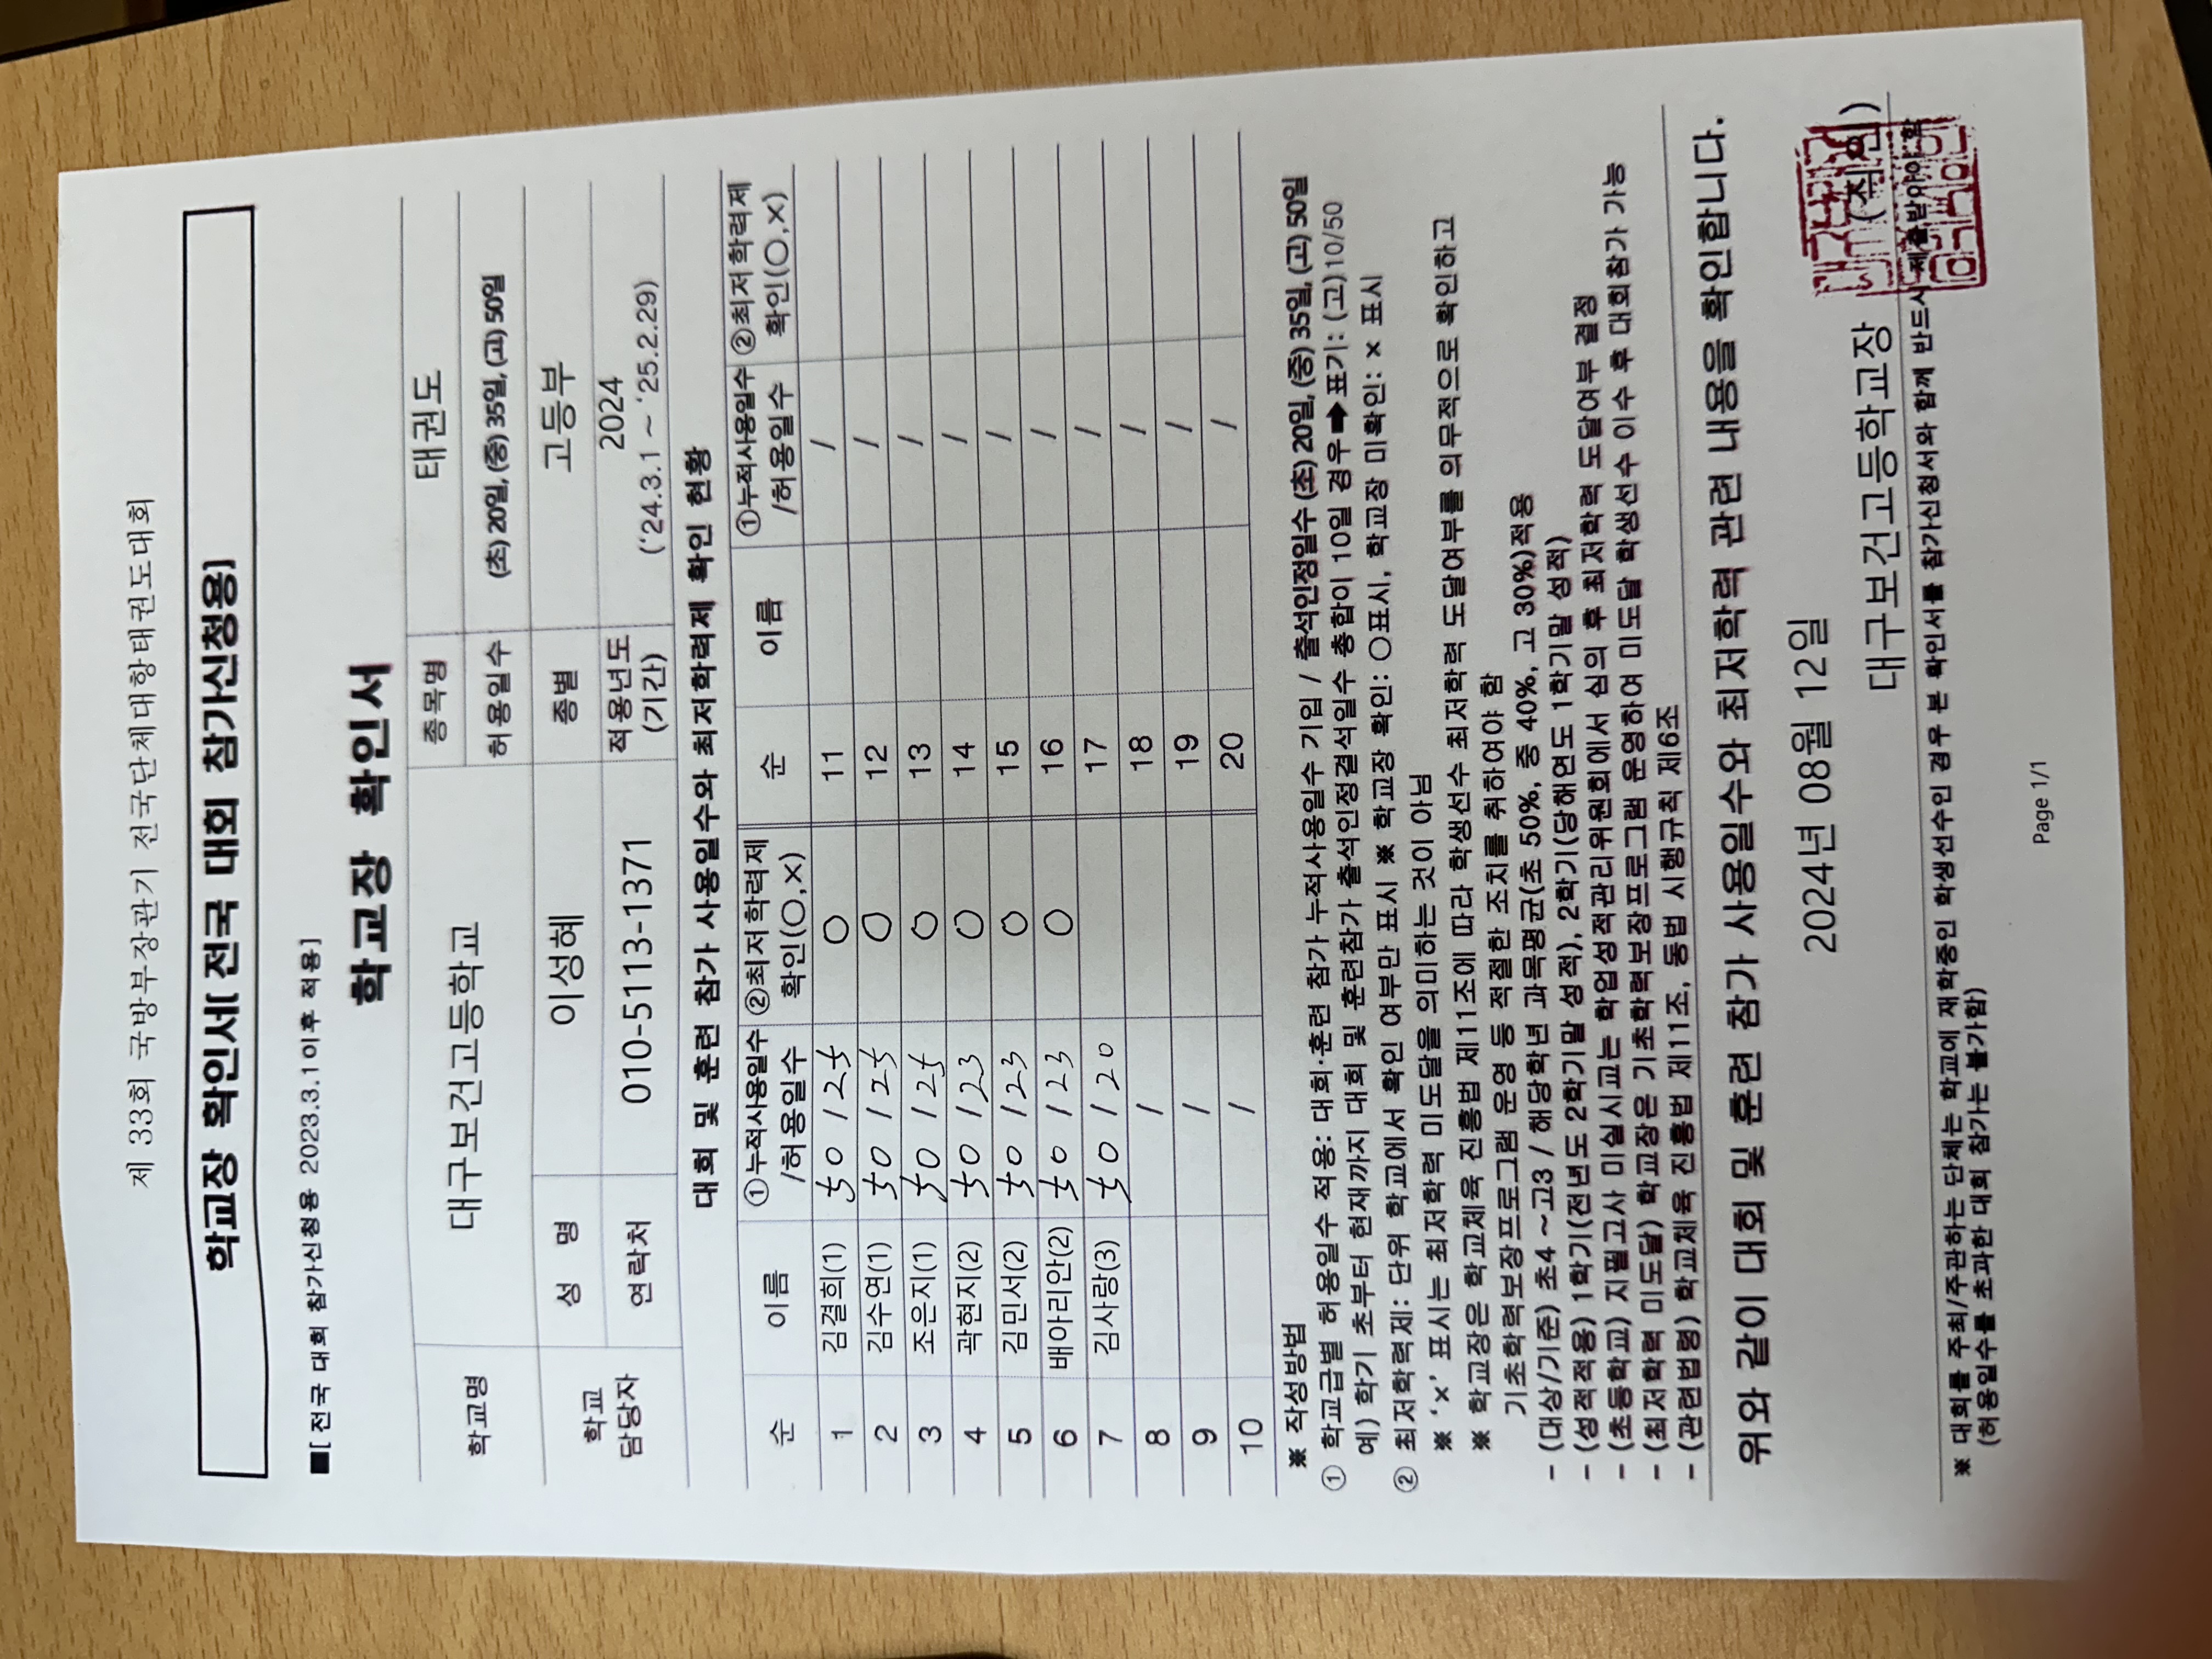 제 33회 국방부장관기 전국단체대항태권도대회
학교장 확인서[ 전국 대회 참가신청용]
■[ 전국 대회 참가신청용 2023.3.1이후 적용]
학교장 확인서
학교명 대구보건고등학교 종목명 태권도
허용일수 (초) 20일, (중) 35일, (고) 50일
학교 담당자 성 명 이성혜 종별 고등부
연락처 010-5113-1371 적용년도 (기간) 2024 ('24.3.1 ~ '25.2.29)
대회 및 훈련 참가 사용일수와 최저학력제 확인 현황
순 이름 ①누적사용일수 /허용일수 ②최저학력제 확인(○,×) 순 이름 ①누적사용일수 /허용일수 ②최저학력제 확인(○,×)
1 김결희(1) 50 / 25 ○ 11 /
2 김수연(1) 50 / 25 ○ 12 /
3 조은지(1) 50 / 25 ○ 13 /
4 곽현지(2) 50 / 23 ○ 14 /
5 김민서(2) 50 / 23 ○ 15 /
6 배아리안(2) 50 / 23 ○ 16 /
7 김사랑(3) 50 / 20 17 /
8 / 18 /
9 / 19 /
10 / 20 /
※ 작성방법
① 학교급별 허용일수 적용: 대회·훈련 참가 누적사용일수 기입 / 출석인정일수 (초) 20일, (중) 35일, (고) 50일
예) 학기 초부터 현재까지 대회 및 훈련참가 출석인정결석일수 총합이 10일 경우 ➡ 표기: (고)10/50
② 최저학력제: 단위 학교에서 확인 여부만 표시 ※ 학교장 확인: ○표시, 학교장 미확인: × 표시
※ '×' 표시는 최저학력 미도달을 의미하는 것이 아님
※ 학교장은 학교체육 진흥법 제11조에 따라 학생선수 최저학력 도달여부를 의무적으로 확인하고
기초학력보장프로그램 운영 등 적절한 조치를 취하여야 함
- (대상/기준) 초4 ~고3 / 해당학년 과목평균(초 50%, 중 40%, 고 30%)적용
- (성적적용) 1학기(전년도 2학기말 성적), 2학기(당해연도 1학기말 성적)
- (초등학교) 지필고사 미실시교는 학업성적관리위원회에서 심의 후 최저학력 도달여부 결정
- (최저학력 미도달) 학교장은 기초학력보장프로그램 운영하여 미도달 학생선수 이수 후 대회참가 가능
- (관련법령) 학교체육 진흥법 제11조, 동법 시행규칙 제6조
위와 같이 대회 및 훈련 참가 사용일수와 최저학력 관련 내용을 확인합니다.
2024년 08월 12일
대구보건고등학교장 (직인)
※ 대회를 주최/주관하는 단체는 학교에 재학중인 학생선수인 경우 본 확인서를 참가신청서와 함께 반드시 제출받아야 함
(허용일수를 초과한 대회 참가는 불가함)
Page 1/1